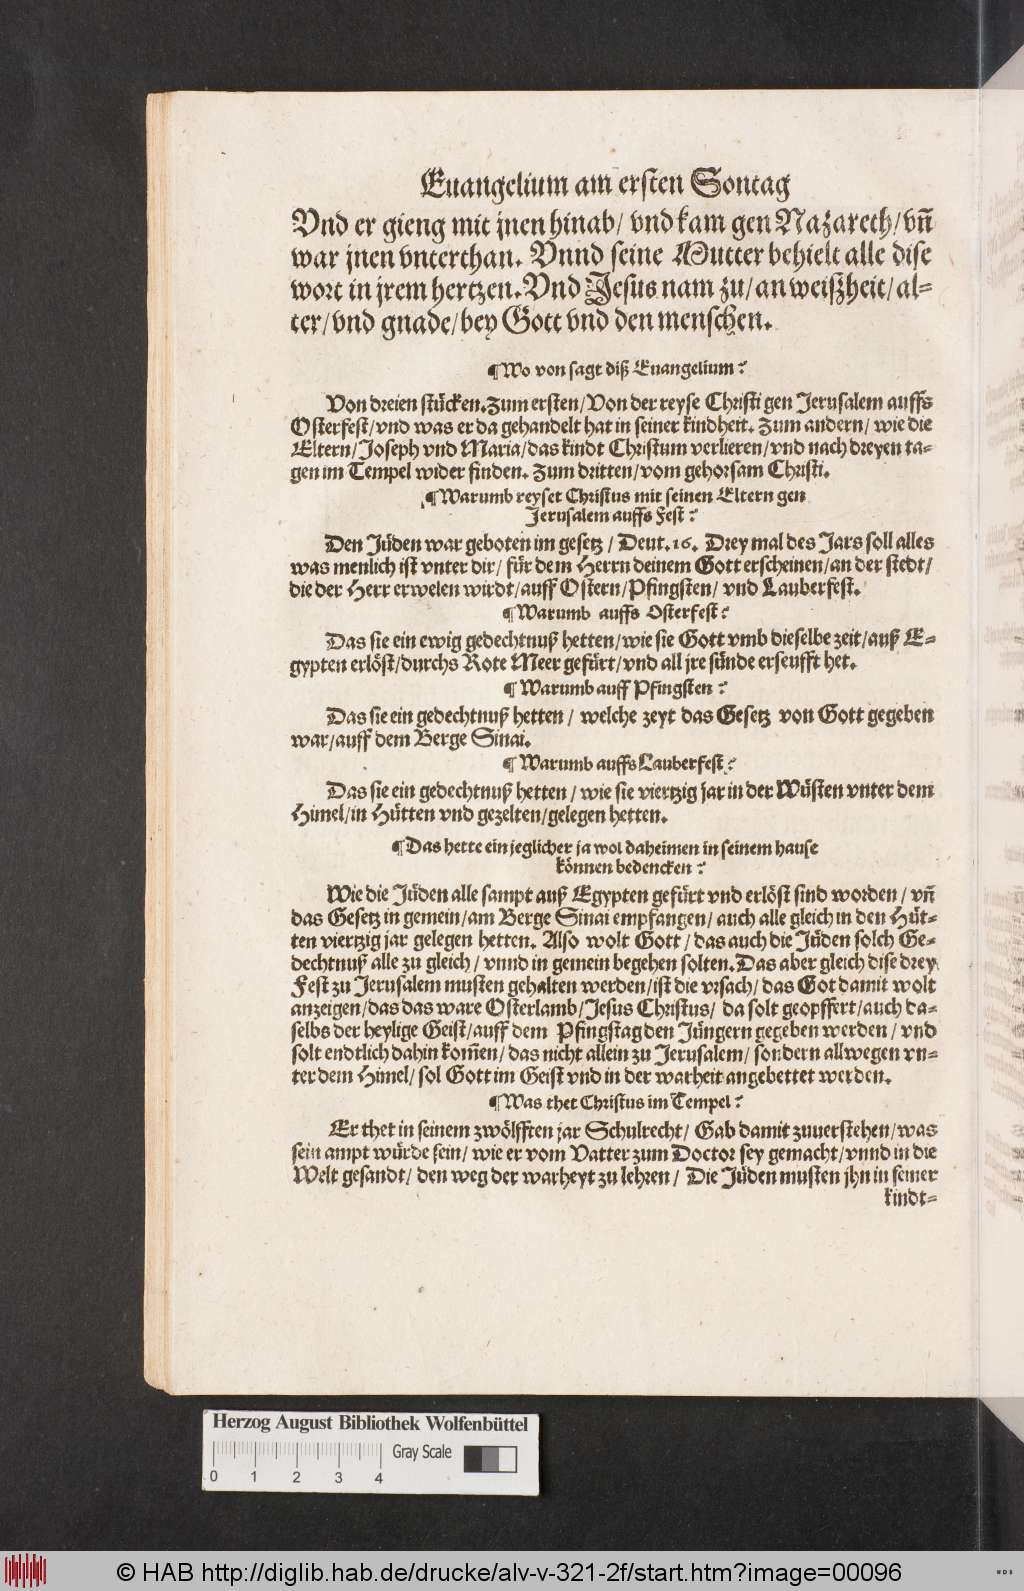 Euangelium am ersten Sontag
Vnd er gieng mit jnen hinab/ vnd kam gen Nazareth/ vñ
war jnen vnterthan. Vnnd seine Mutter behielt alle dise
wort in jrem hertzen. Vnd Jesus nam zu/ an weißheit/ al=
ter/ vnd gnade/ bey Gott vnd den menschen.
¶ Wo von sagt diß Euangelium?
Von dreien stücken. Zum ersten/ Von der reyse Christi gen Jerusalem auffs
Osterfest/ vnd was er da gehandelt hat in seiner kindheit. Zum andern/ wie die
Eltern/ Joseph vnd Maria/ das kindt Christum verlieren/ vnd nach dreyen ta=
gen im Tempel wider finden. Zum dritten/ vom gehorsam Christi.
¶ Warumb reyset Christus mit seinen Eltern gen
Jerusalem auffs Fest?
Den Jüden war geboten im gesetz/ Deut. 16. Drey mal des Jars soll alles
was menlich ist vnter dir/ für dem Herrn deinem Gott erscheinen/ an der stedt/
die der Herr erwelen wirdt/ auff Ostern/ Pfingsten/ vnd Lauberfest.
¶ Warumb auffs Osterfest?
Das sie ein ewig gedechtnuß hetten/ wie sie Gott vmb dieselbe zeit/ auß E=
gypten erlöst/ durchs Rote Meer gefürt/ vnd all jre fünde erseufft het.
¶ Warumb auff Pfingsten?
Das sie ein gedechtnuß hetten/ welche zeyt das Gesetz von Gott gegeben
war/ auff dem Berge Sinai.
¶ Warumb auffs Lauberfest?
Das sie ein gedechtnuß hetten/ wie sie viertzig jar in der Wüsten vnter dem
Himel/ in Hütten vnd gezelten/ gelegen hetten.
¶ Das hette ein jeglicher ja wol daheimen in seinem hause
können bedencken?
Wie die Jüden alle sampt auß Egypten gefürt vnd erlöst sind worden/ vñ
das Gesetz in gemein/ am Berge Sinai empfangen/ auch alle gleich in den Hüt=
ten viertzig jar gelegen hetten. Also wolt Gott/ das auch die Jüden solch Ge=
dechtnuß alle zu gleich/ vnnd in gemein begehen solten. Das aber gleich dise drey
Fest zu Jerusalem musten gehalten werden/ ist die vrsach/ das Got damit wolt
anzeigen/ das das ware Osterlamb/ Jesus Christus/ da solt geopffert/ auch da=
selbs der heylige Geist/ auff dem Pfingstag den Jüngern gegeben werden/ vnd
solt endtlich dahin kom̃en/ das nicht allein zu Jerusalem/ sondern allwegen vn=
ter dem Himel/ sol Gott im Geist vnd in der warheit angebettet werden.
¶ Was thet Christus im Tempel?
Er thet in seinem zwölfften jar Schulrecht/ Gab damit zuuerstehen/ was
sein ampt würde sein/ wie er vom Vatter zum Doctor sey gemacht/ vnnd in die
Welt gesandt/ den weg der warheyt zu lehren/ Die Jüden musten jhn in seiner
kindt=
Herzog August Bibliothek Wolfenbüttel
Gray Scale
0 1 2 3 4
© HAB http://diglib.hab.de/drucke/alv-v-321-2f/start.htm?image=00096